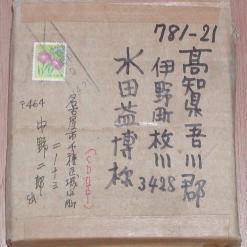 781-21
高知県吾川郡
伊野町枝川
3428
水田益博様
〒464
名古屋市千種区
二ー十三
中野二郎